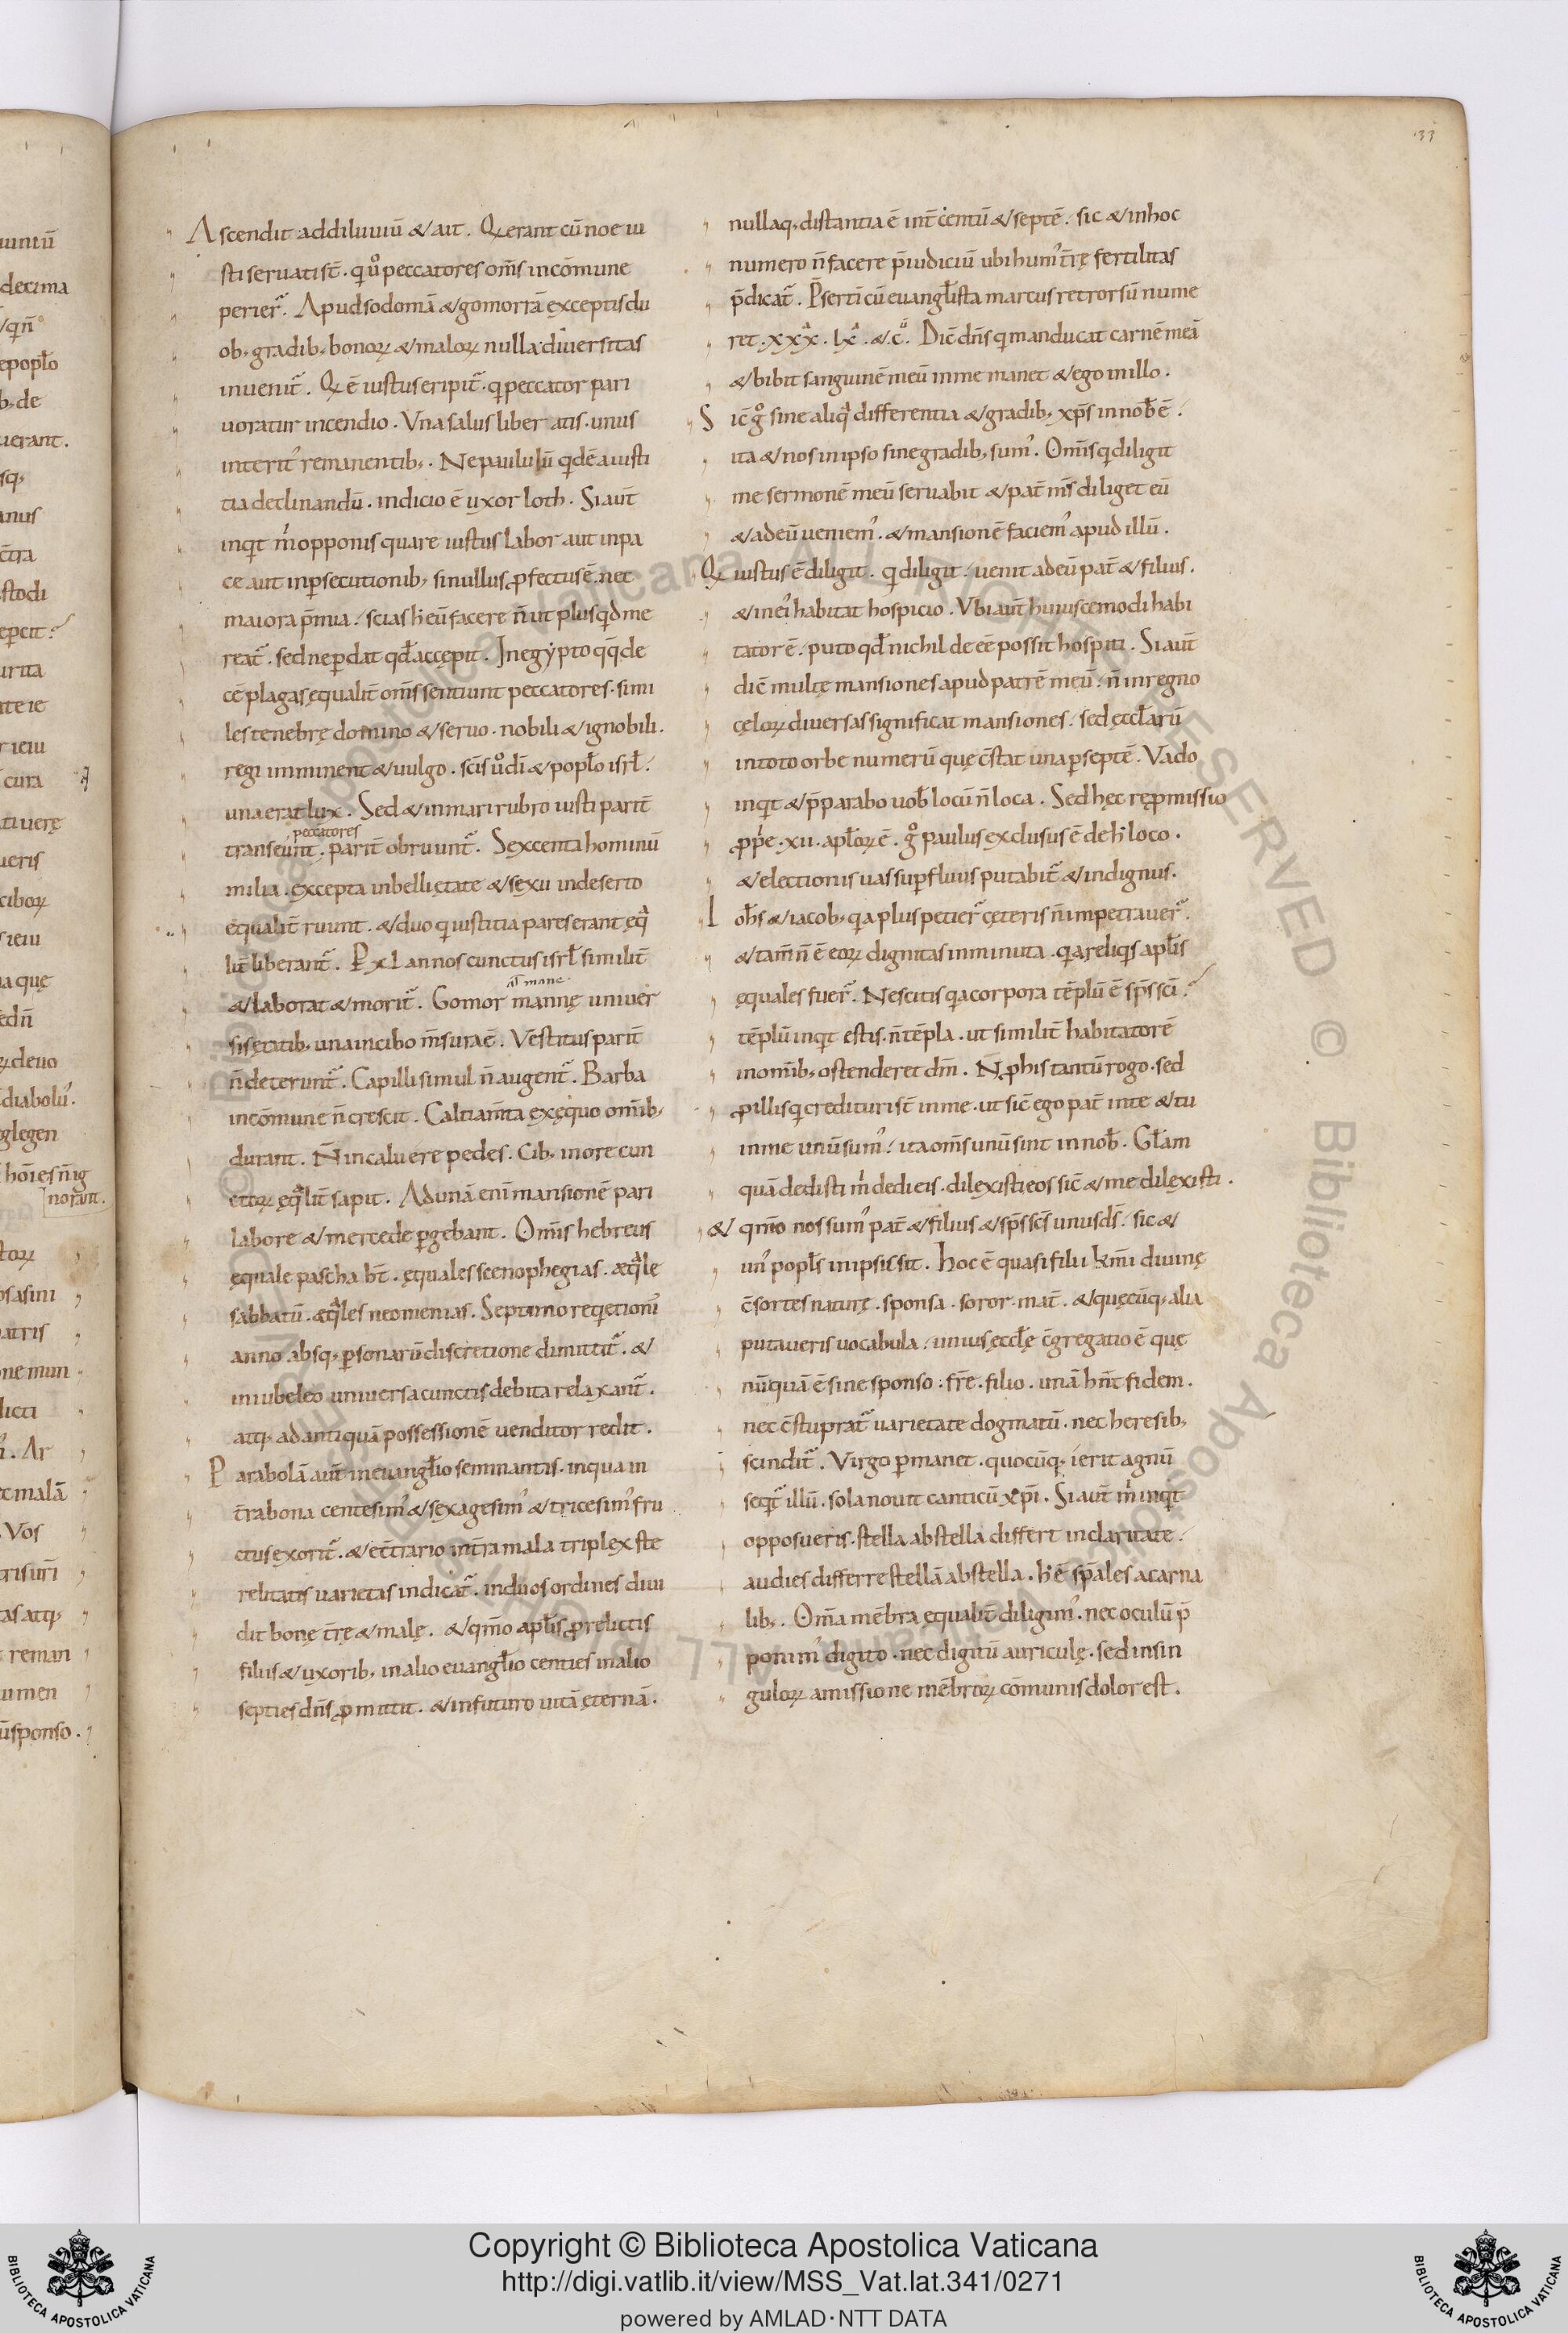 133
Ascendit addiluuiū & ait. Qi erant cū noe iu
sti seruati st̄. qi u̇o peccatores om̄s incōmune
perier̃. Apud sodomā & gomorrā exceptis du
ob; gradib; bonoꝝ & maloꝝ nulla diuersitas
inuenit̃. Qi ē iustus eripit̃. qi peccator pari
uoratur incendio. Vna salus liberatis. unus
interit᾽ remanentib;. Ne paululū qidē a iusti
tia declinandū. indicio ē uxor loth. Si aut̄
inqit m̓ opponis quare iustus labor aut in pa
ce aut in ꝑsecutionib; si nullus ꝓfectus ē. nec
maiora p̄mia. scias h̓ eū facere n̄ ut plus qid me
reat̃. sed ne ꝑdat qd̄ accępit. In egẏpto qq̄ de
cē plagas ęqualit̄ om̄s sentiunt peccatores. simi
les tenebrę domino & seruo. nobili & ignobili.
regi imminent & uulgo. sc̄is u̇o dī & popl̄o isrl̄.
una erat lux. Sed & in mari rubro iusti parit̄
peccatores
transeunt. parit̄ obruunt̃. Sexcenta hominū
milia. excepta inbelli ętate & sexu in deserto
ęqualit̄ ruunt. & duo qi iustitia pares erant ęqa
lit̄ liberant̃. P xl annos cunctus isrl̄ similit̄
al̄ mane
& laborat & morit̃. Gomor mannę uniuer
sis ętatib; una in cibo m̄sura ē. Vestitus parit̄
n̄ deterunt̃. Capilli simul n̄ augent̃. Barba
in cōmune n̄ crescit. Caltiam̄ta ex ęquo om̄ib;
durant. N̄ incaluere pedes. Cib; in ore cun
ctoꝝ ęqalit̄ sapit. Ad unā enī mansionē pari
labore & mercede ꝑgebant. Om̄is hebreus
ęquale pascha hт̄. ęquales scenophegias. ęqale
sabbatū. ęqales neomenias. Septimo reqietionis
anno absq; ꝑsonarū discretione dimittit̃. &
in iubeleo uniuersa cunctis debita relaxant̃.
atq; ad antiquā possessionē uenditor redit.
Parabolā aut̄ in euangl̄io seminantis. in qua in
t̄ra bona centesim᾽ & sexagesim᾽ & tricesim᾽ fru
ctus exorit̃. & ec̄trario in t̄ra mala triplex ste
relitatis uarietas indicat̃. in duos ordines diui
dit bonę t̄rę & malę. & qm̄o apl̄is ꝓ relictis
filiis & uxorib; in alio euangl̄io centies in alio
septies dn̄s ꝓmittit. & in futuro uitā ęternā.
nullaq; distantia ē int̄ centū & septē. sic & in hoc
numero n̄ facere p̄iudiciū ubi hum᾽ t̄rę fertilitas
p̄dicat̃. P̄sertī cū euangl̄ista marcus retrorsū nume
ret. xxx. lx. & c. Dic̄ dn̄s qi manducat carnē meā
& bibit sanguinē meū in me manet & ego in illo.
Sic̄ g̊ sine aliqa differentia & gradib; xp̄s in nob̄ ē.
ita & nos in ipso sine gradib; sum᾽. Om̄is qi diligit
me sermonē meū seruabit & pat̄ m̄s diliget eū
& ad eū ueniem᾽. & mansionē faciem᾽ apud illū.
Qi iustus ē diligit. qi diligit. uenit ad eū pat̄ & filius.
& in ei᾽ habitat hospicio. Vbi aut̄ huiuscemodi habi
tator ē. puto qd̄ nichil deee possit hospiti. Si aut̄
dic̄ multę mansiones apud patrē meū. n̄ in regno
cęloꝝ diuersas significat mansiones. sed ęccl̄arū
in toto orbe numerū quę c̄stat una ꝑ septē. Vado
inqit & p̄parabo uob̄ locū n̄ loca. Sed hęc repmissio
ꝓp̄e. xii. apl̄oꝝ ē. g̊ paulus exclusus ē de h̓ loco.
& electionis uas suꝑfluus putabit̃ & indignus.
Ioh̄s & iacob; qia plus petier̃ cęteris n̄ impetrauer̃.
& tam̄ n̄ ē eoꝝ dignitas inminuta. qia reliqis apl̄is
ęquales fuer̃. Nescitis qia corpora tēplū ē sp̄s sc̄i.
tēplū inqit estis. n̄ tēpla. ut similit̄ habitatorē
in omib; ostenderet dm̄. N̄ ꝓ his tantū rogo. sed
ꝓ illis qi credituri st̄ in me. ut sic̄ ego pat̄ in te & tu
in me unū sum᾽. ita om̄s unū sint in nob̄. Gl̄am
quā dedisti m̓ dedi eis. dilexisti eos sic̄ & me dilexisti.
& qm̄o nos sum᾽ pat̄ & filius & sp̄s sc̄s unus ds̄. sic &
un᾽ popl̄s in ipsis sit. Hoc ē quasi filii kmī diuinę
c̄sortes naturę. sponsa. soror. mat̄. & quęcūq; alia
putaueris uocabula. unius ęccl̄ę c̄gregatio ē quę
nūquā ē sine sponso: fr̄e. filio. unā hn̄t fidem.
nec c̄stuprat̃ uarietate dogmatū. nec heresib;
scindit̃. Virgo ꝑmanet. quocūq; ierit agnū
seqit̃ illū. sola nouit canticū xp̄i. Si aut̄ m̓ inqit
opposueris. stella ab stella differt in claritate.
audies differre stellā ab stella. h̓ ē sp̄ales a carna
lib;. Om̄ia mēbra ęqualit̄ diligim᾽. nec oculū p̄
ponim᾽ digito. nec digitū auriculę. sed in sin
guloꝝ amissione mēbroꝝ cōmunis dolor est.
Copyright © Biblioteca Apostolica Vaticana
http://digi.vatlib.it/view/MSS_Vat.lat.341/0271
powered by AMLAD·NTT DATA